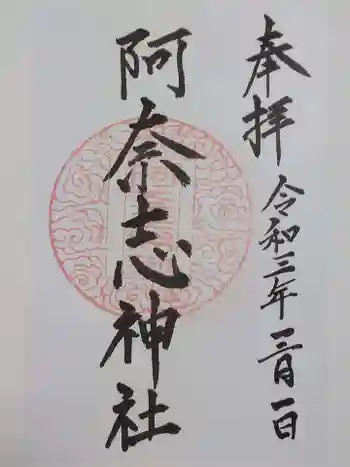 奉拝
令和三年三月一日
阿奈志神社